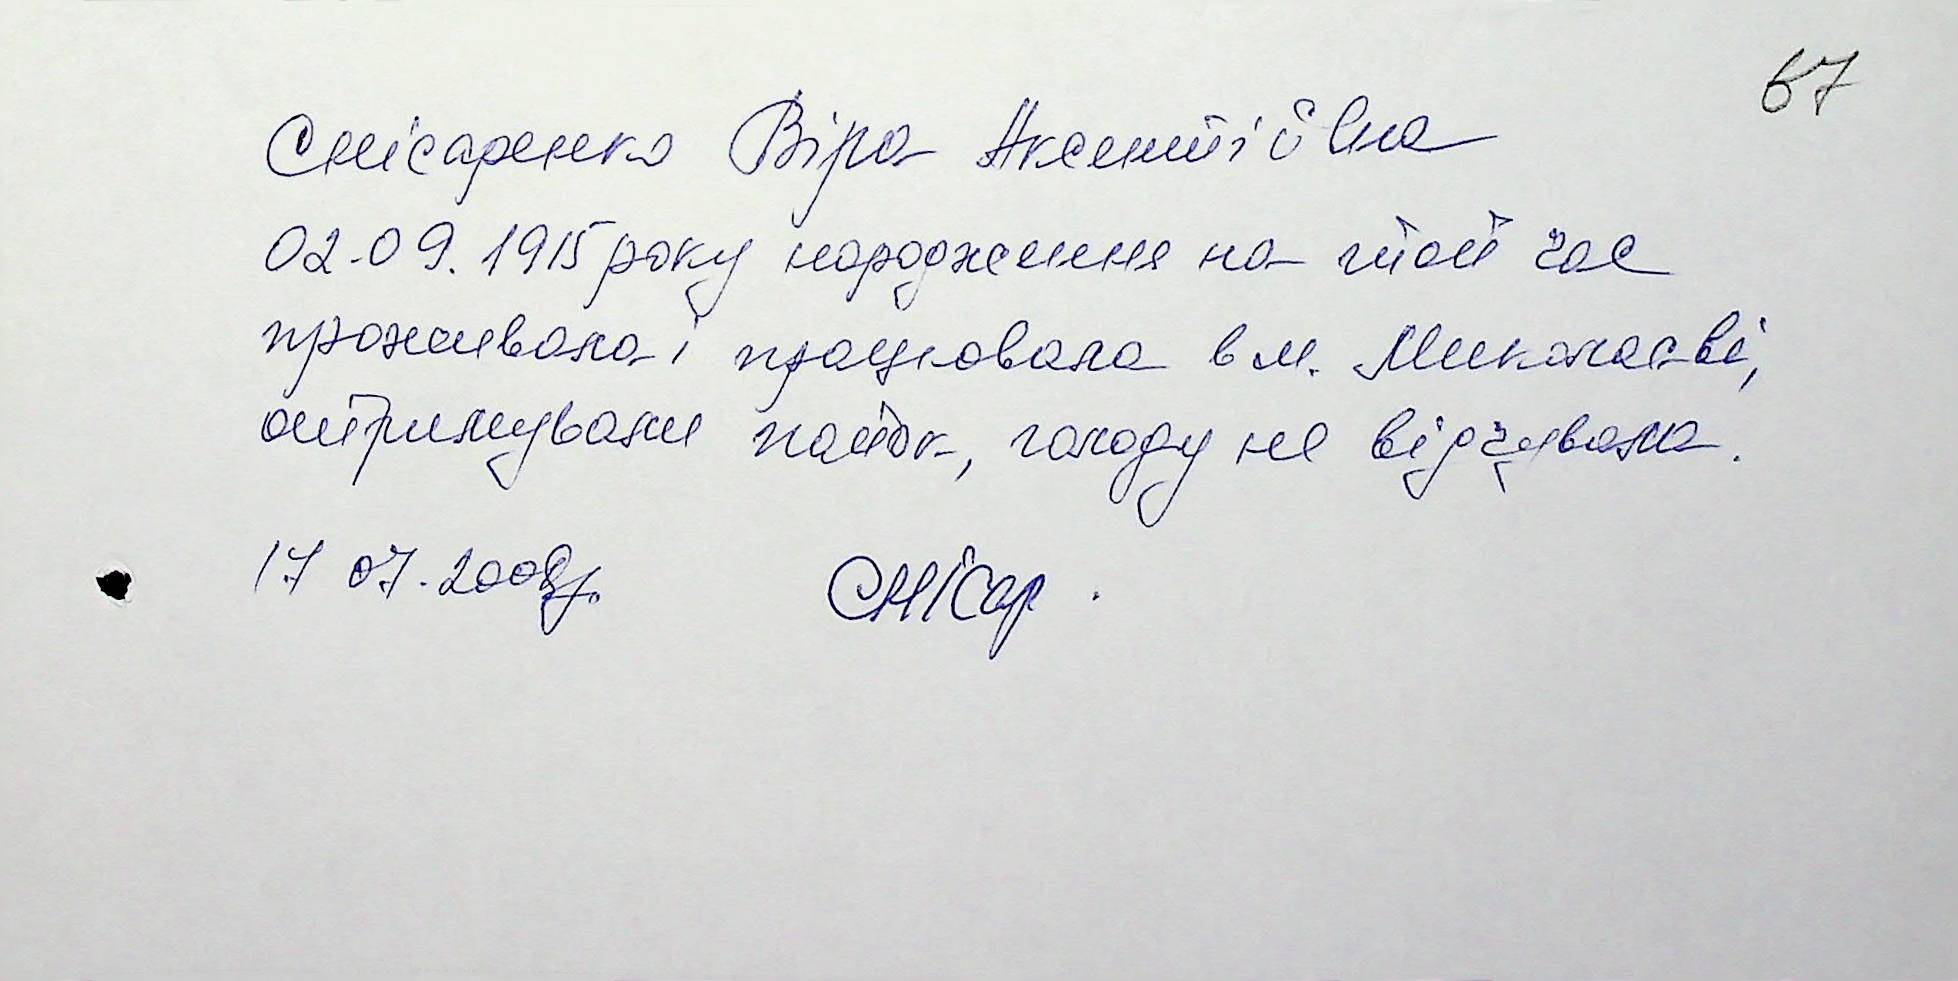 67
Снісаренко Віра Аксентіївна
02.09.1915 року народження на той час
проживала і працювала в м. Миколаєві,
отримували пайок, голоду не відчувала.
17 07.2008р. СНІСар.